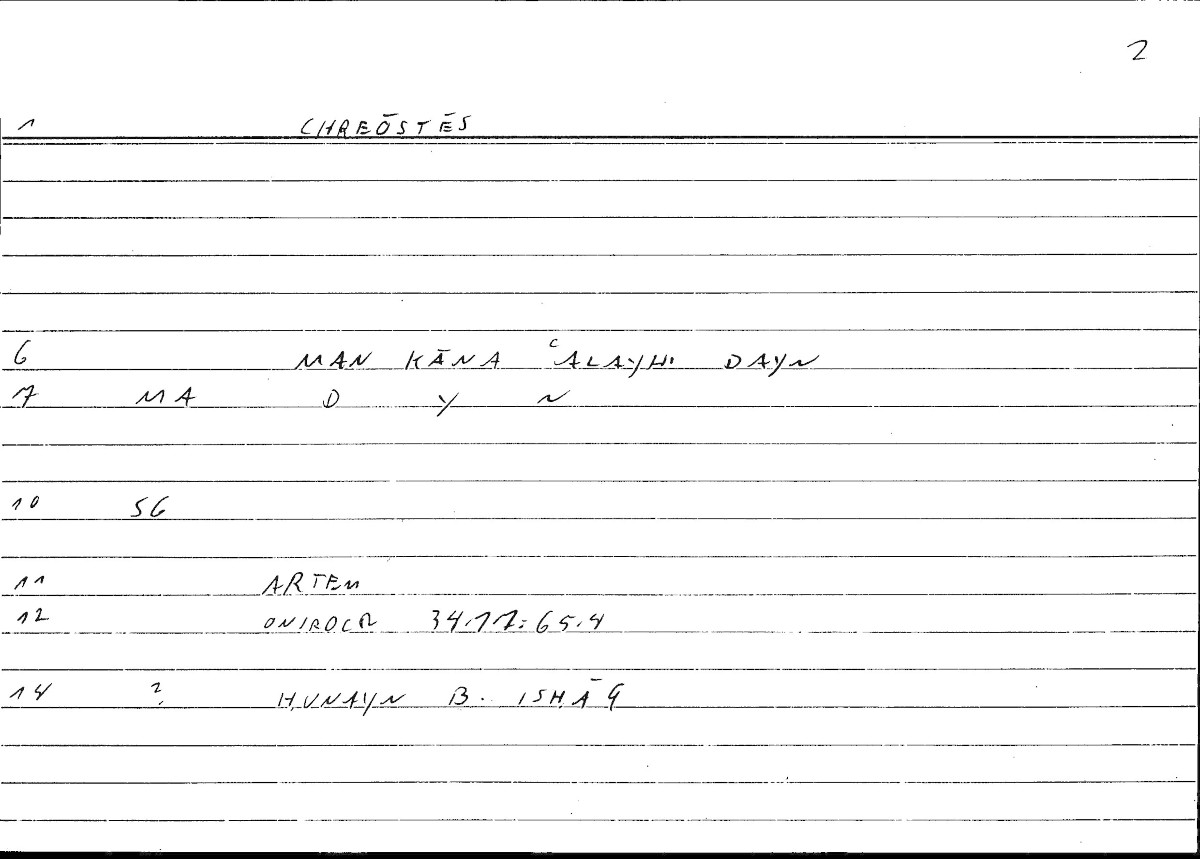 2
1 CHREŌSTĒS
6 MAN KĀNA ʿALAYHI DAYN
7 MA D Y N
10 SG
11 ARTEM
12 ONIROCR 34.17:65.4
14 ? ḤUNAYN B. ISḤĀQ